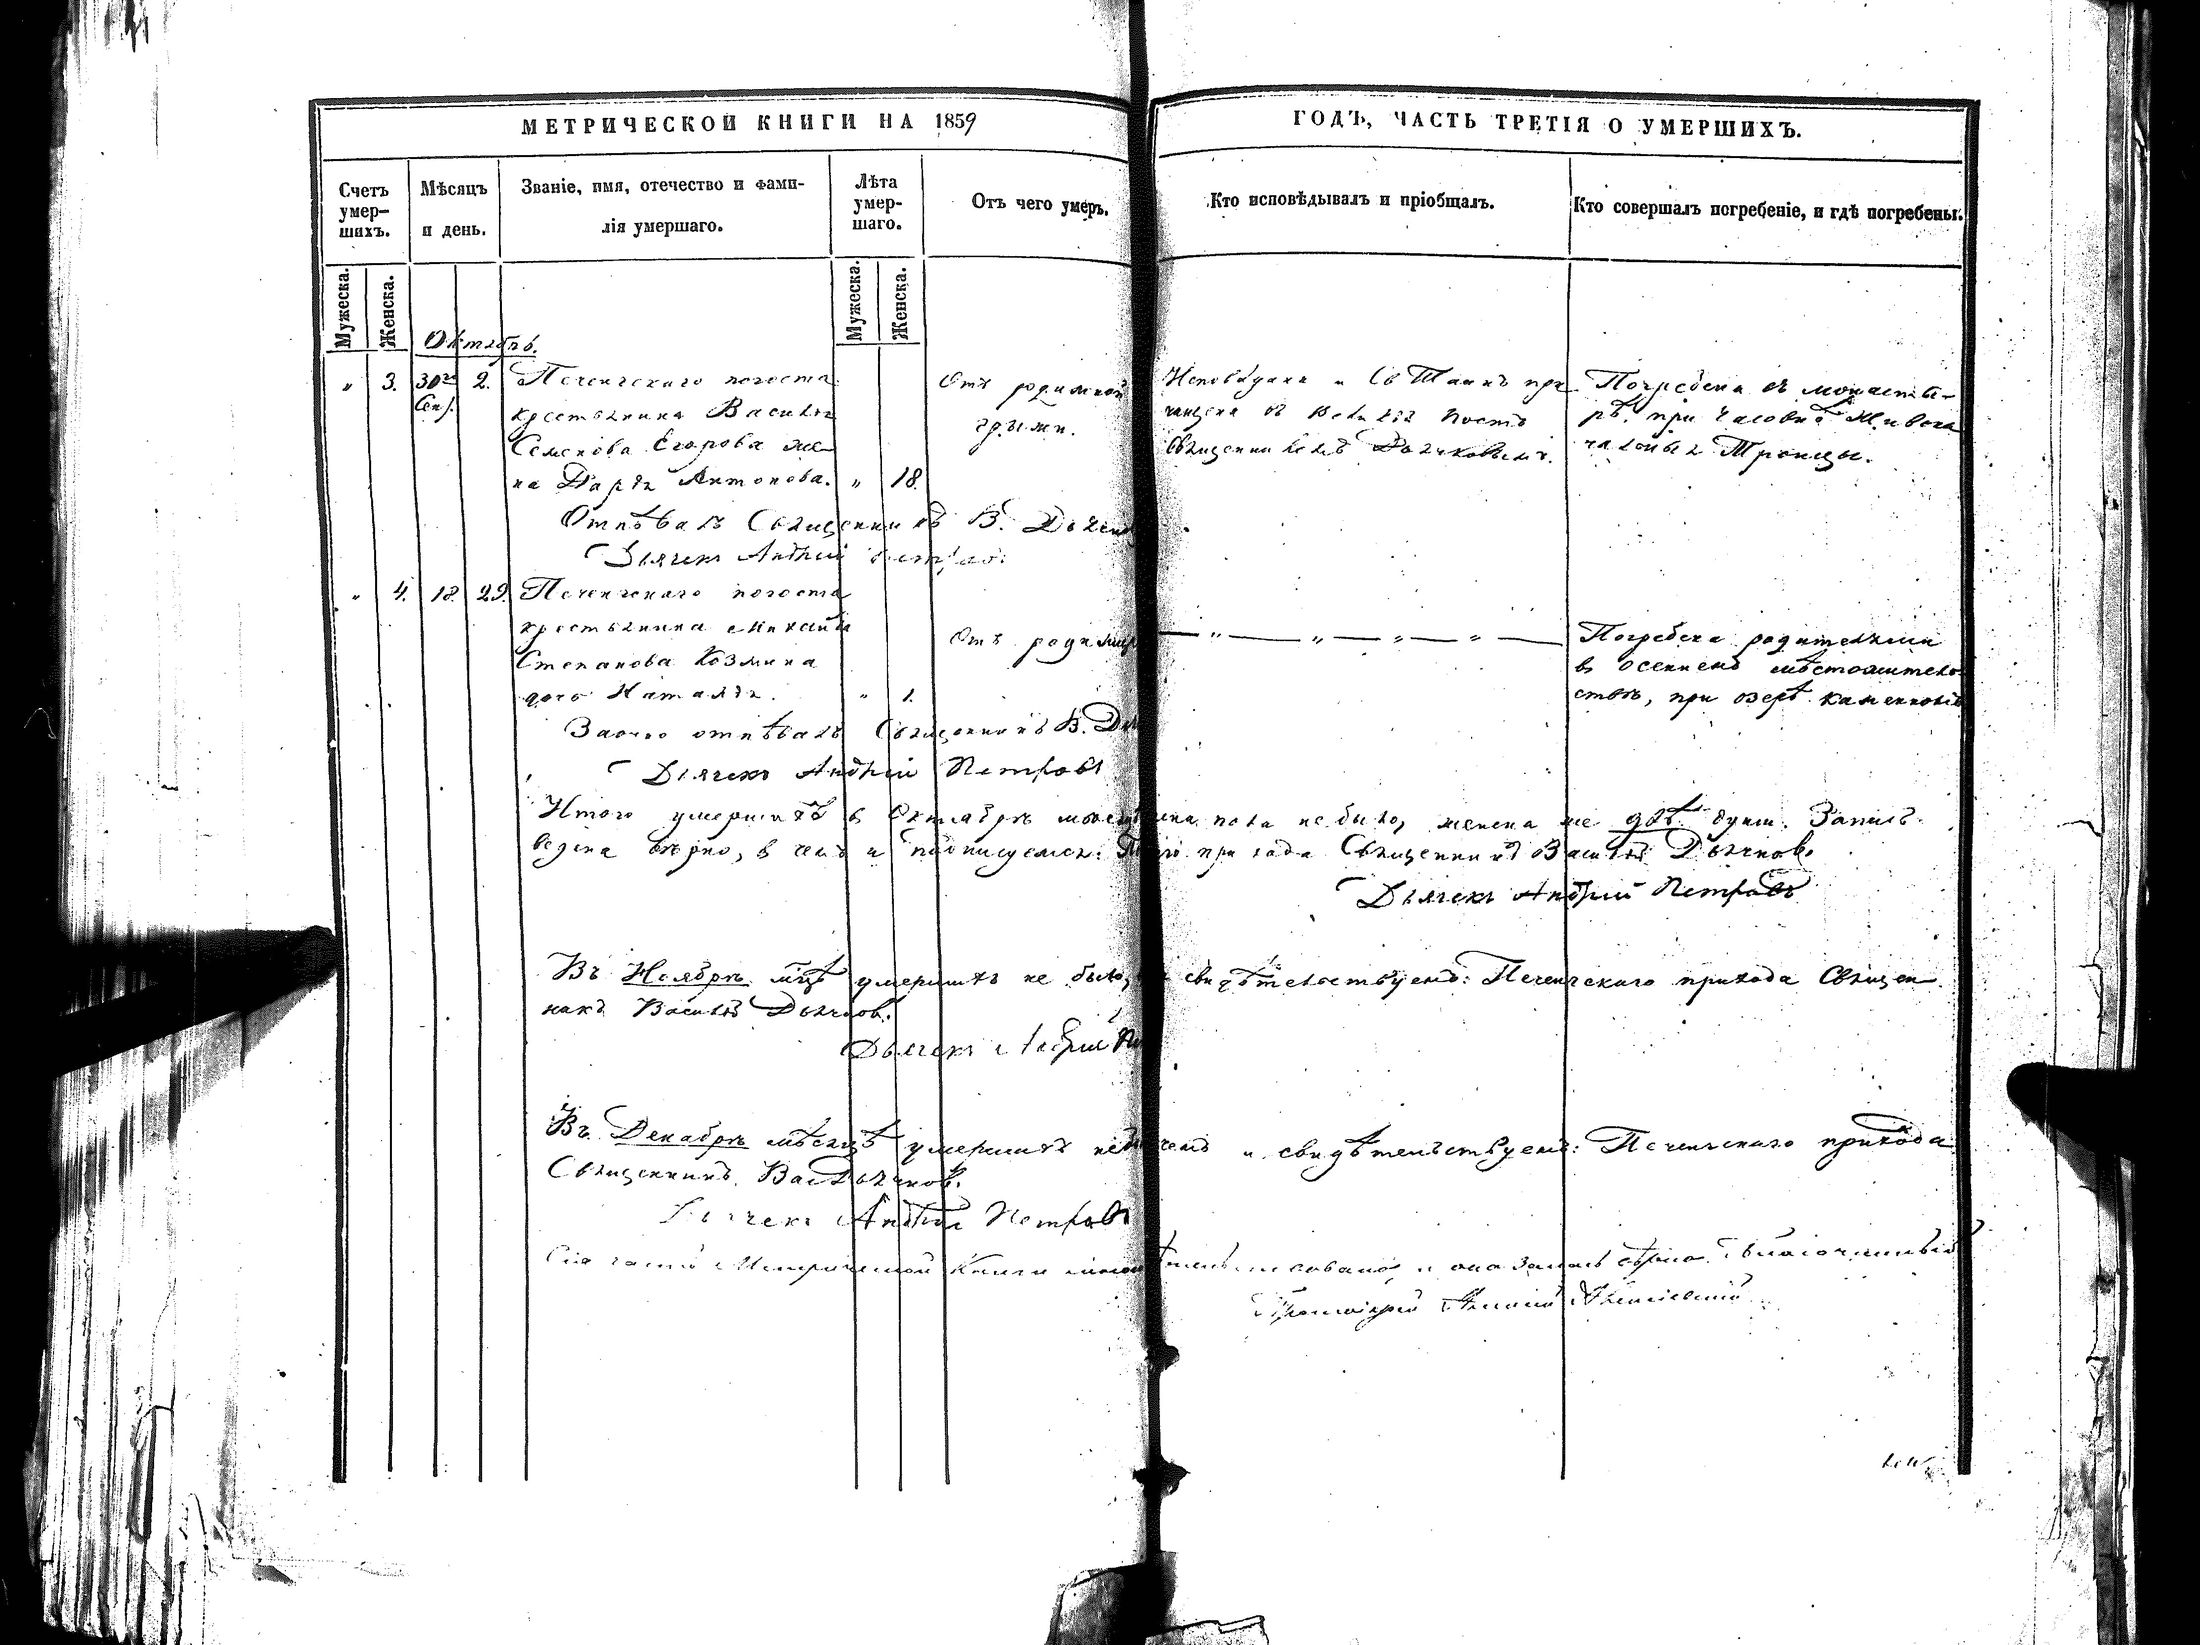 МЕТРИЧЕСКОЙ КНИГИ НА 1859
ГОДЪ, ЧАСТЬ ТРЕТІЯ О УМЕРШИХЪ.
Счетъ умер-шихъ.
Мѣсяцъ и день.
Званіе, имя, отечество и фами-
лія умершаго.
Лѣта умер-шаго.
Отъ чего умеръ.
Кто исповѣдывалъ и пріобщалъ.
Кто совершалъ погребеніе, и гдѣ погребены.
Мужеска. Женска.
Мужеска. Женска.
Октябрь.
" 3. 30го Сен. 2. Печенгскаго погоста
крестьянина Василья
Семенова Егорова же-
на Дарья Антонова. " 18.
Отъ родимой
грыжи.
Исповѣдана и Св Таинъ при-
чащена въ Великій постъ
Священникомъ Дьячковымъ.
Погребена въ монасты-
рѣ при часовнѣ Живона
чальныя Троицы.
Отпѣвалъ Священникъ В.
Дьячекъ Андрей
" 4. 18. 29. Печенгскаго погоста
крестьянина Михаила
Степанова Козмина
дочь Наталья. " 1.
Отъ родимца
— " — " — " — " —
Погребена родителями
въ осеннемъ мѣстожитель
ствѣ, при озерѣ Каменномъ
Заочно отпѣвалъ Священникъ В.
Дьячекъ Андрей Петровъ
Итого умершихъ въ Октябрѣ пола не было, женска же двѣ души. Запись
ведена вѣрно, въ чемъ и подписуемся: прихода Священникъ Василій Дьячков.
Дьячекъ Андрей Петровъ
Въ Ноябрѣ мцѣ умершихъ не было, свидѣтельствуемъ: Печенгскаго прихода Священ
никъ Василій Дьячков.
Дьячекъ Андрей
Въ Декабрѣ мѣсяцѣ умершихъ чемъ и свидѣтельствуемъ: Печенгскаго прихода
Священникъ Вас Дьячков.
Дьячекъ Андрей Петровъ
Сія часть Метрической Книги Благочинный
Протоіерей